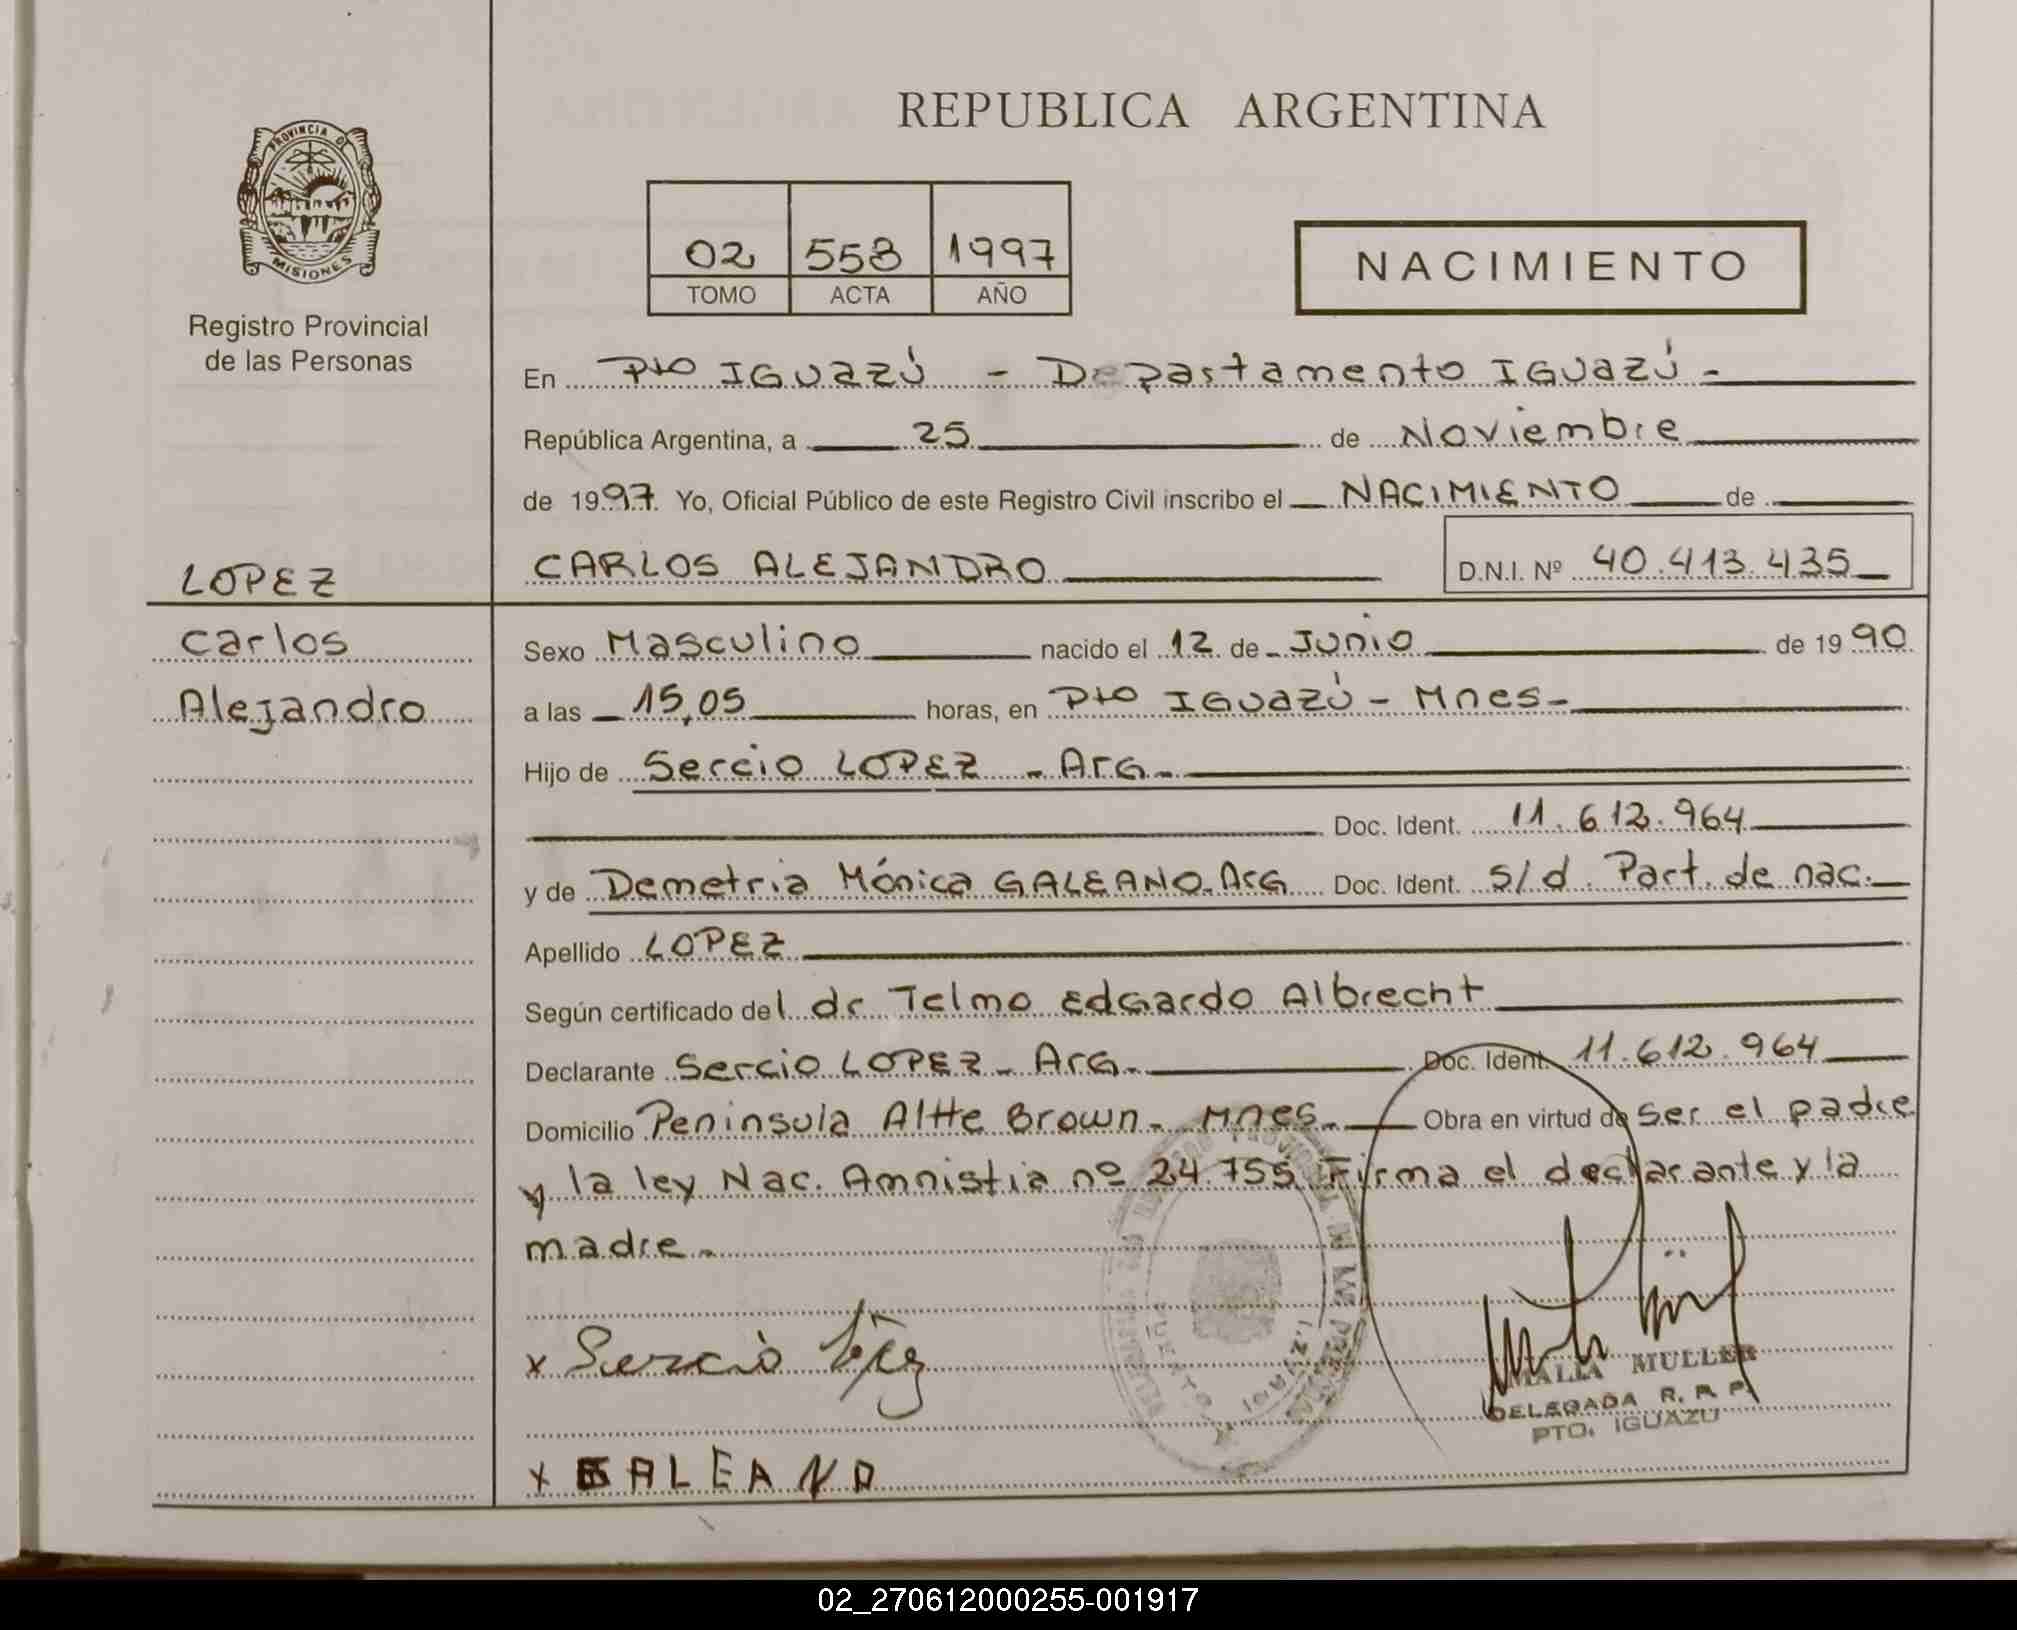 REPUBLICA ARGENTINA
PROVINCIA DE
MISIONES
Registro Provincial
de las Personas
02 558 1997
TOMO ACTA AÑO
NACIMIENTO
En Pto IGuazú - Departamento IGuazú -
República Argentina, a 25 de Noviembre
de 1997. Yo, Oficial Público de este Registro Civil inscribo el NACIMIENTO de
LOPEZ
CARLOS ALEJANDRO D.N.I. Nº 40.413.435
Carlos
Alejandro
Sexo Masculino nacido el 12 de Junio de 1990
a las 15,05 horas, en Pto IGuazú - Mnes-
Hijo de Sercio LOPEZ - ArG-
Doc. Ident. 11.612.964
y de Demetria Mónica GALEANO-ArG Doc. Ident. s/d. Part. de nac.
Apellido LOPEZ
Según certificado del dr Telmo EdGardo Albrecht
Declarante Sercio LOPEZ - ArG- Doc. Ident. 11.612.964
Domicilio Peninsula Altte Brown - Mnes- Obra en virtud de ser el padre
y la ley Nac. Amnistia nº 24.755 Firma el declarante y la
madre-
x Sercio
x GALEANO
MULLER
DELEGADA R. P. P.
PTO. IGUAZU
PUERTO IGUAZU
02_270612000255-001917